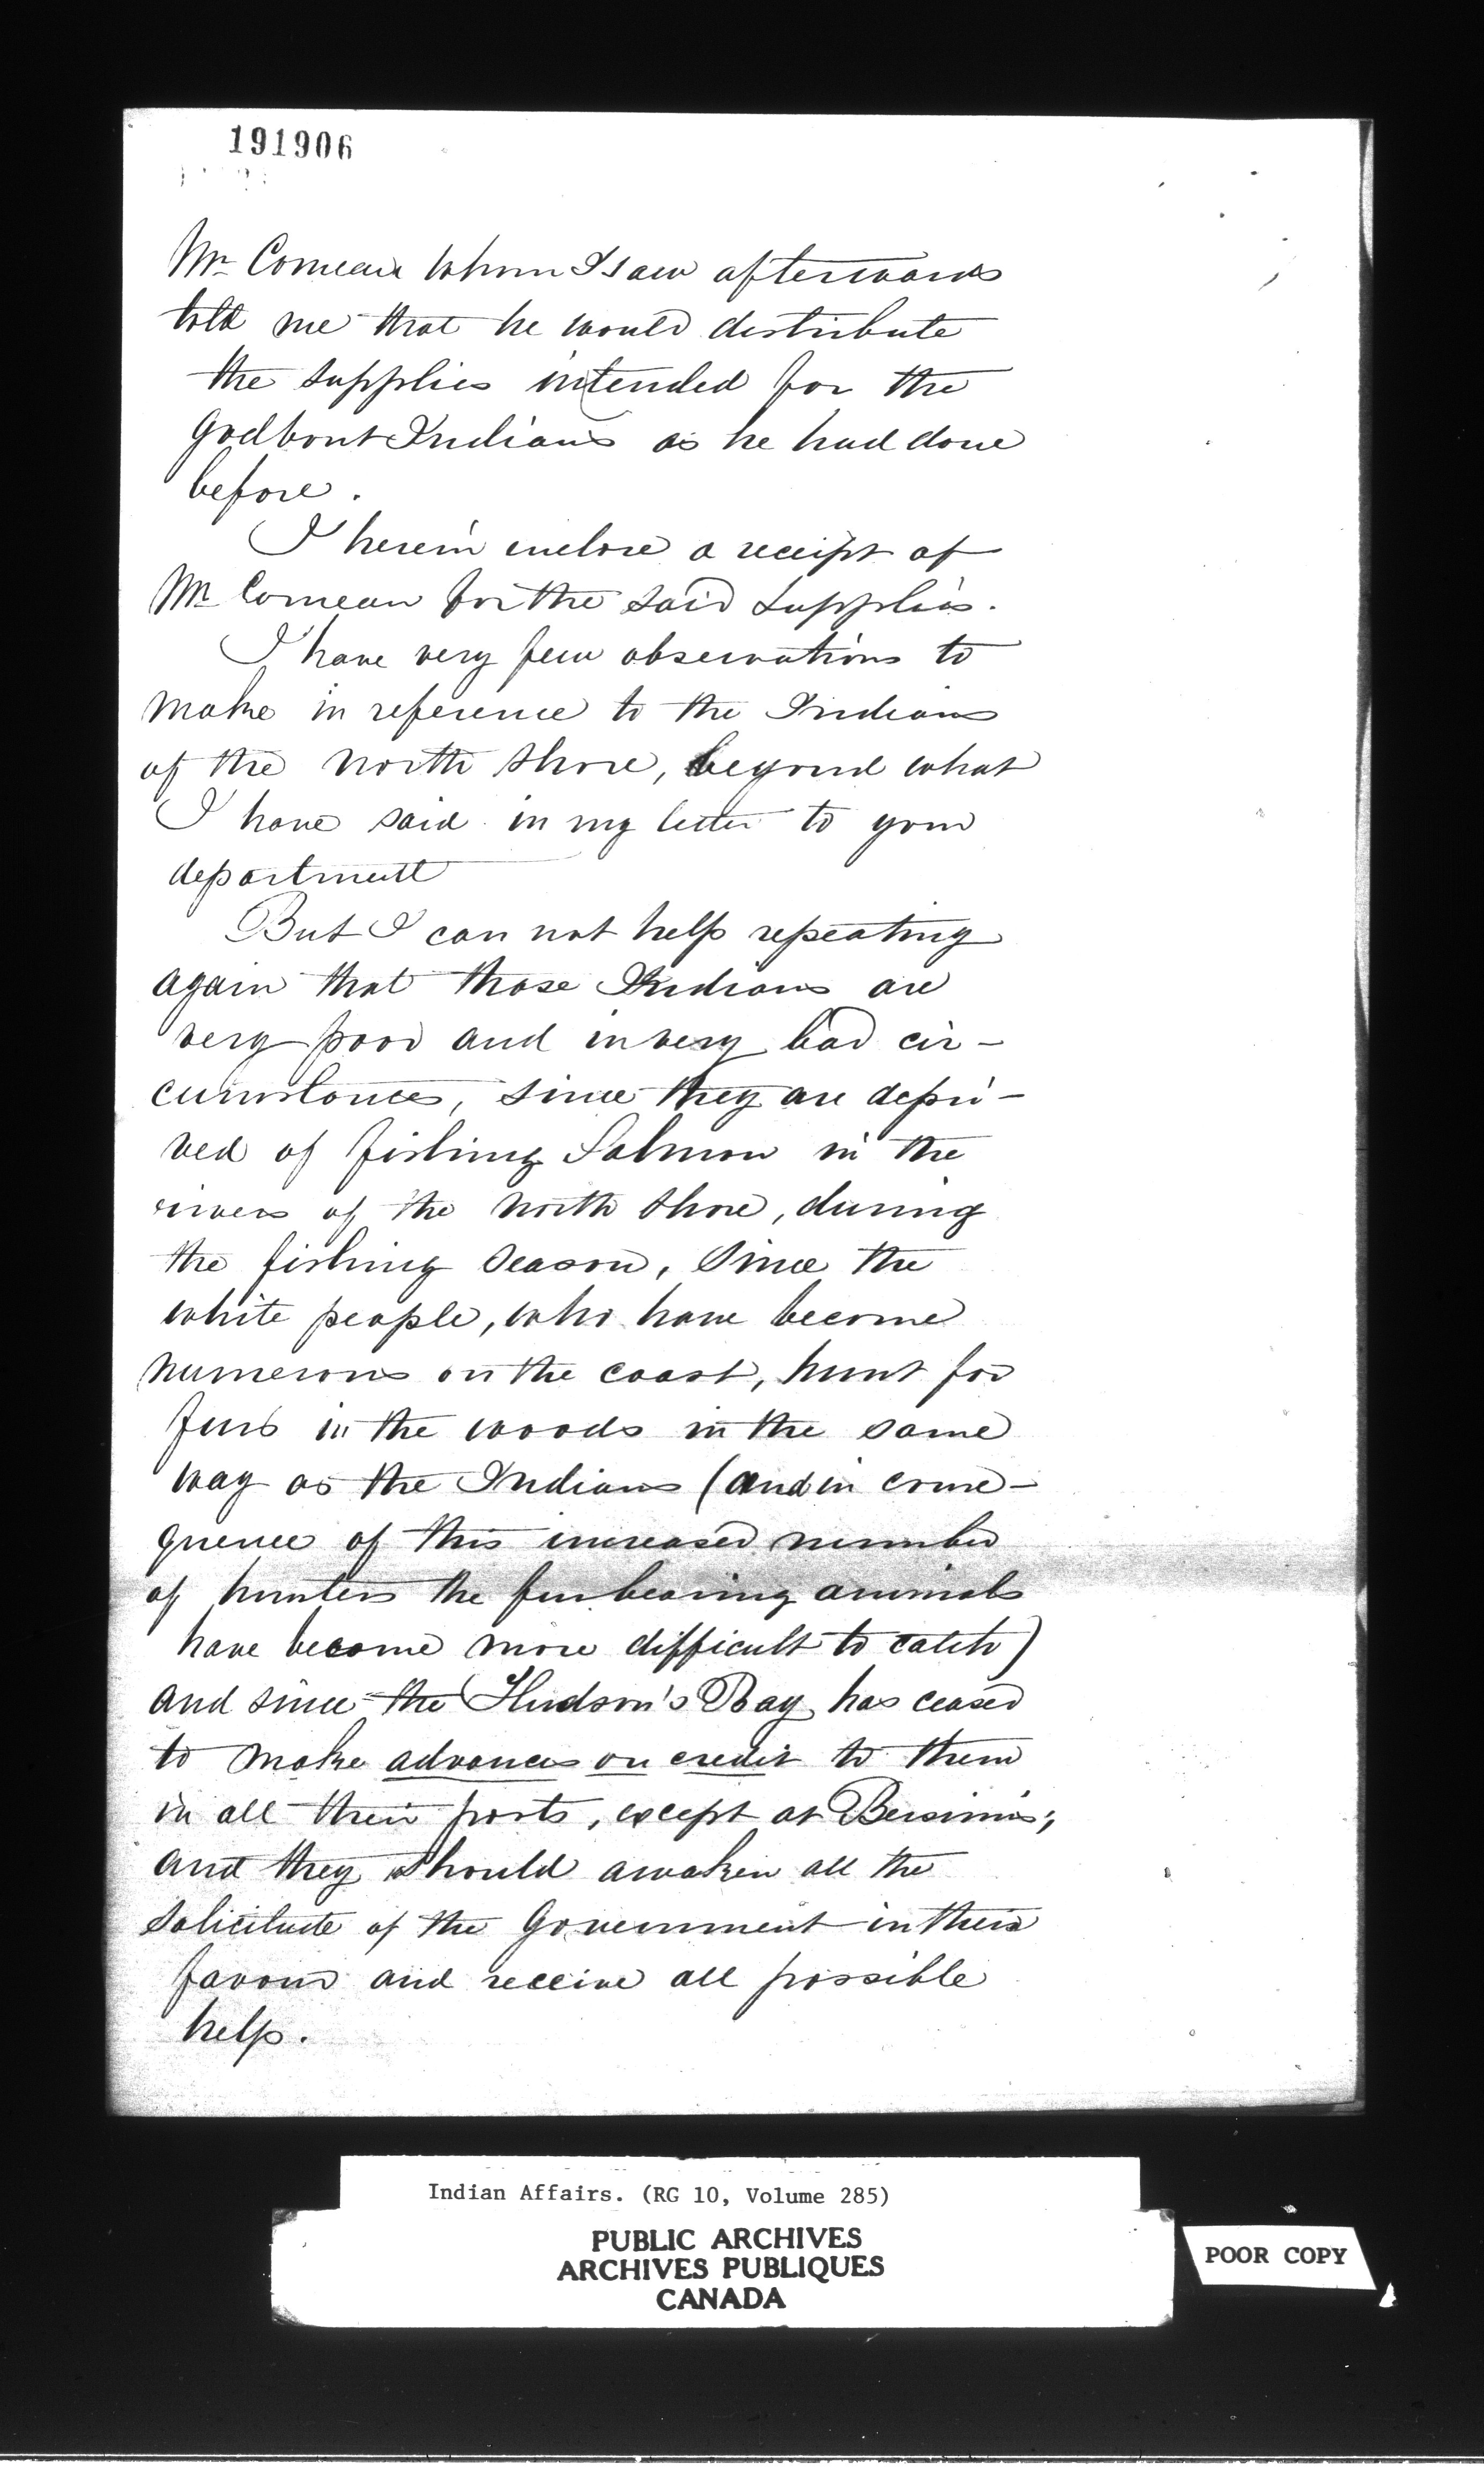 191906
Mr Comeau whom I saw afterwards
told me that he would distribute
the supplies intended for the
Godbout Indians as he had done
before.
I herein inclose a receipt of
Mr Comeau for the said supplies.
I have very few observations to
make in reference to the Indians
of the north shore, beyond what
I have said in my letter to your
department
But I can not help repeating
again that those Indians are
very poor and in very bad cir-
cumstances, since they are depri-
ved of fishing Salmon in the
rivers of the north shore, during
the fishing season, since the
white people, who have become
numerous on the coast, hunt for
furs in the woods in the same
way as the Indians (and in conse-
quence of this increased number
of hunters the furbearing animals
have become more difficult to catch)
and since the Hudson's Bay has ceased
to make advances on credit to them
in all their posts, except at Bersimis;
and they should awaken all the
solicitude of the Government in their
favour and receive all possible
help.
Indian Affairs. (RG 10, Volume 285)
PUBLIC ARCHIVES
ARCHIVES PUBLIQUES
CANADA
POOR COPY